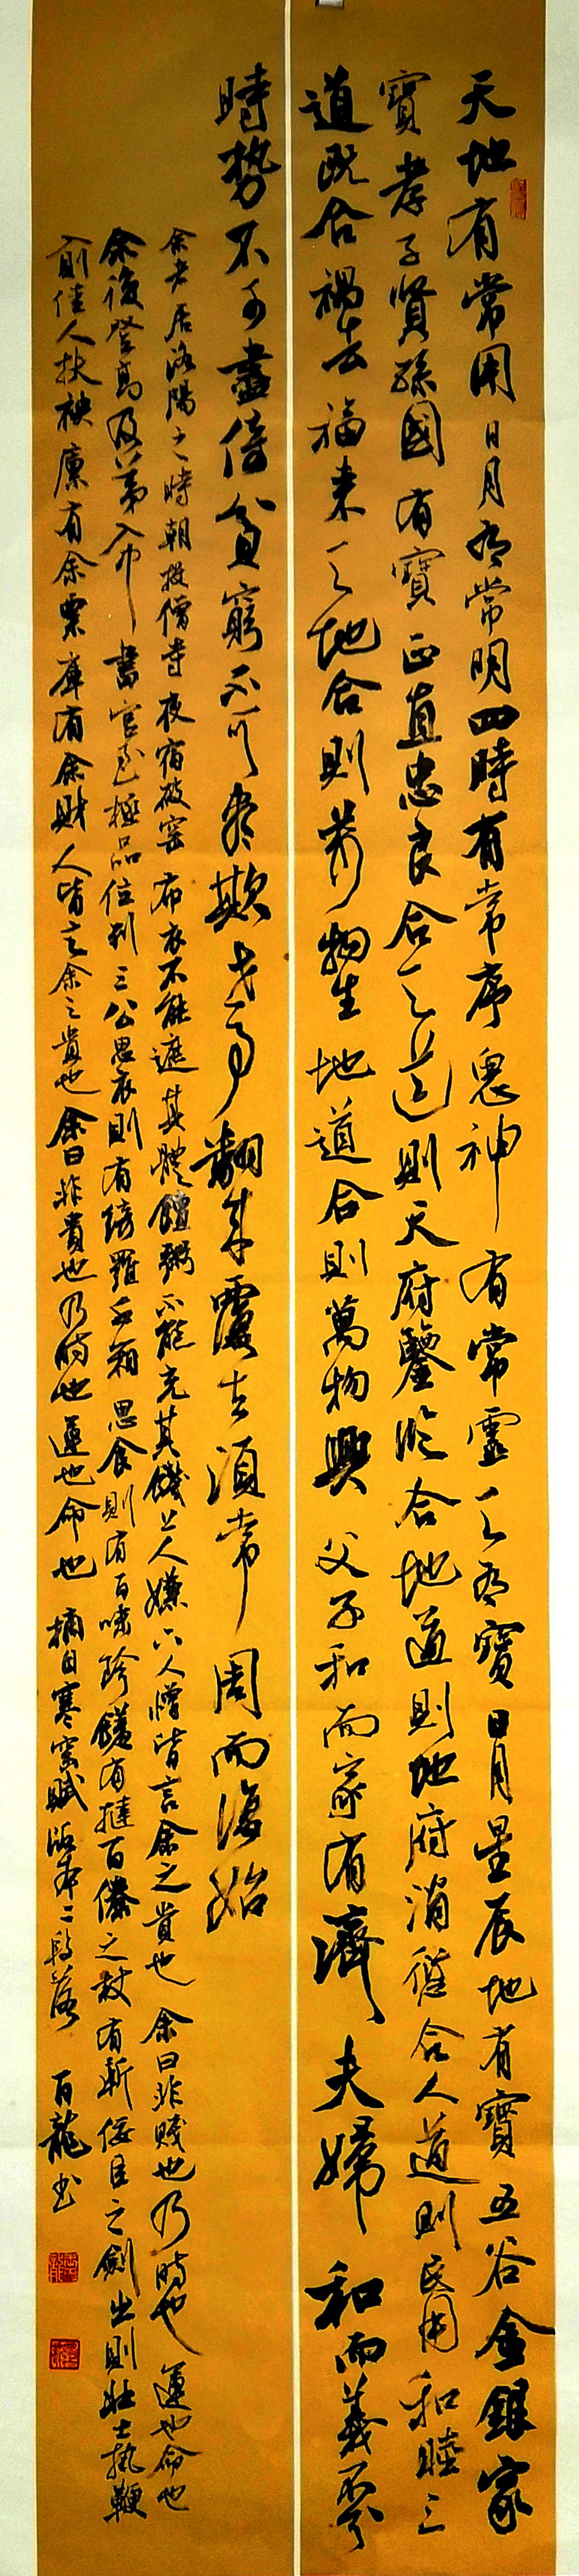 天地有常用日月有常明四時有常序鬼神有常靈天有寶日月星辰地有寶五谷金銀家
寶孝子賢孫國有寶正直忠良合天道則天府鑒臨合地道則地府消愆合人道則民用和睦三
道既合禍去福來天地合則萬物生地道合則萬物興父子和而家有濟夫婦和而義不分
時勢不可盡倚貧窮不可盡欺世事翻來覆去須當周而復始
余者居洛陽之時朝投僧寺夜宿破窑布衣不能遮其體饘粥不能充其饑上人嫌下人憎皆言余之賤也余曰非賤也乃時也運也命也
余後登高及第入中書官至極品位列三公思衣則有綺羅千箱思食則有百味珍饈有撻百僚之杖有斬佞臣之劍出則壯士執鞭
前佳人扶袂廩有余粟庫有余財人皆言余之貴也余曰非貴也乃時也運也命也 摘自寒窑賦版本二段落 百龍书